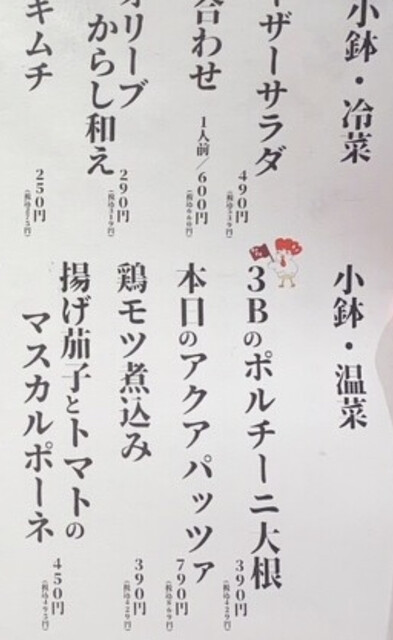 小鉢・冷菜
ーザーサラダ
490円
(税込539円)
合わせ 1人前/600円
(税込660円)
オリーブ
からし和え
290円
(税込319円)
キムチ
250円
(税込275円)
小鉢・温菜
3Bのポルチーニ大根
390円
(税込429円)
本日のアクアパッツァ
790円
(税込869円)
鶏モツ煮込み
390円
(税込429円)
揚げ茄子とトマトの
マスカルポーネ
450円
(税込495円)